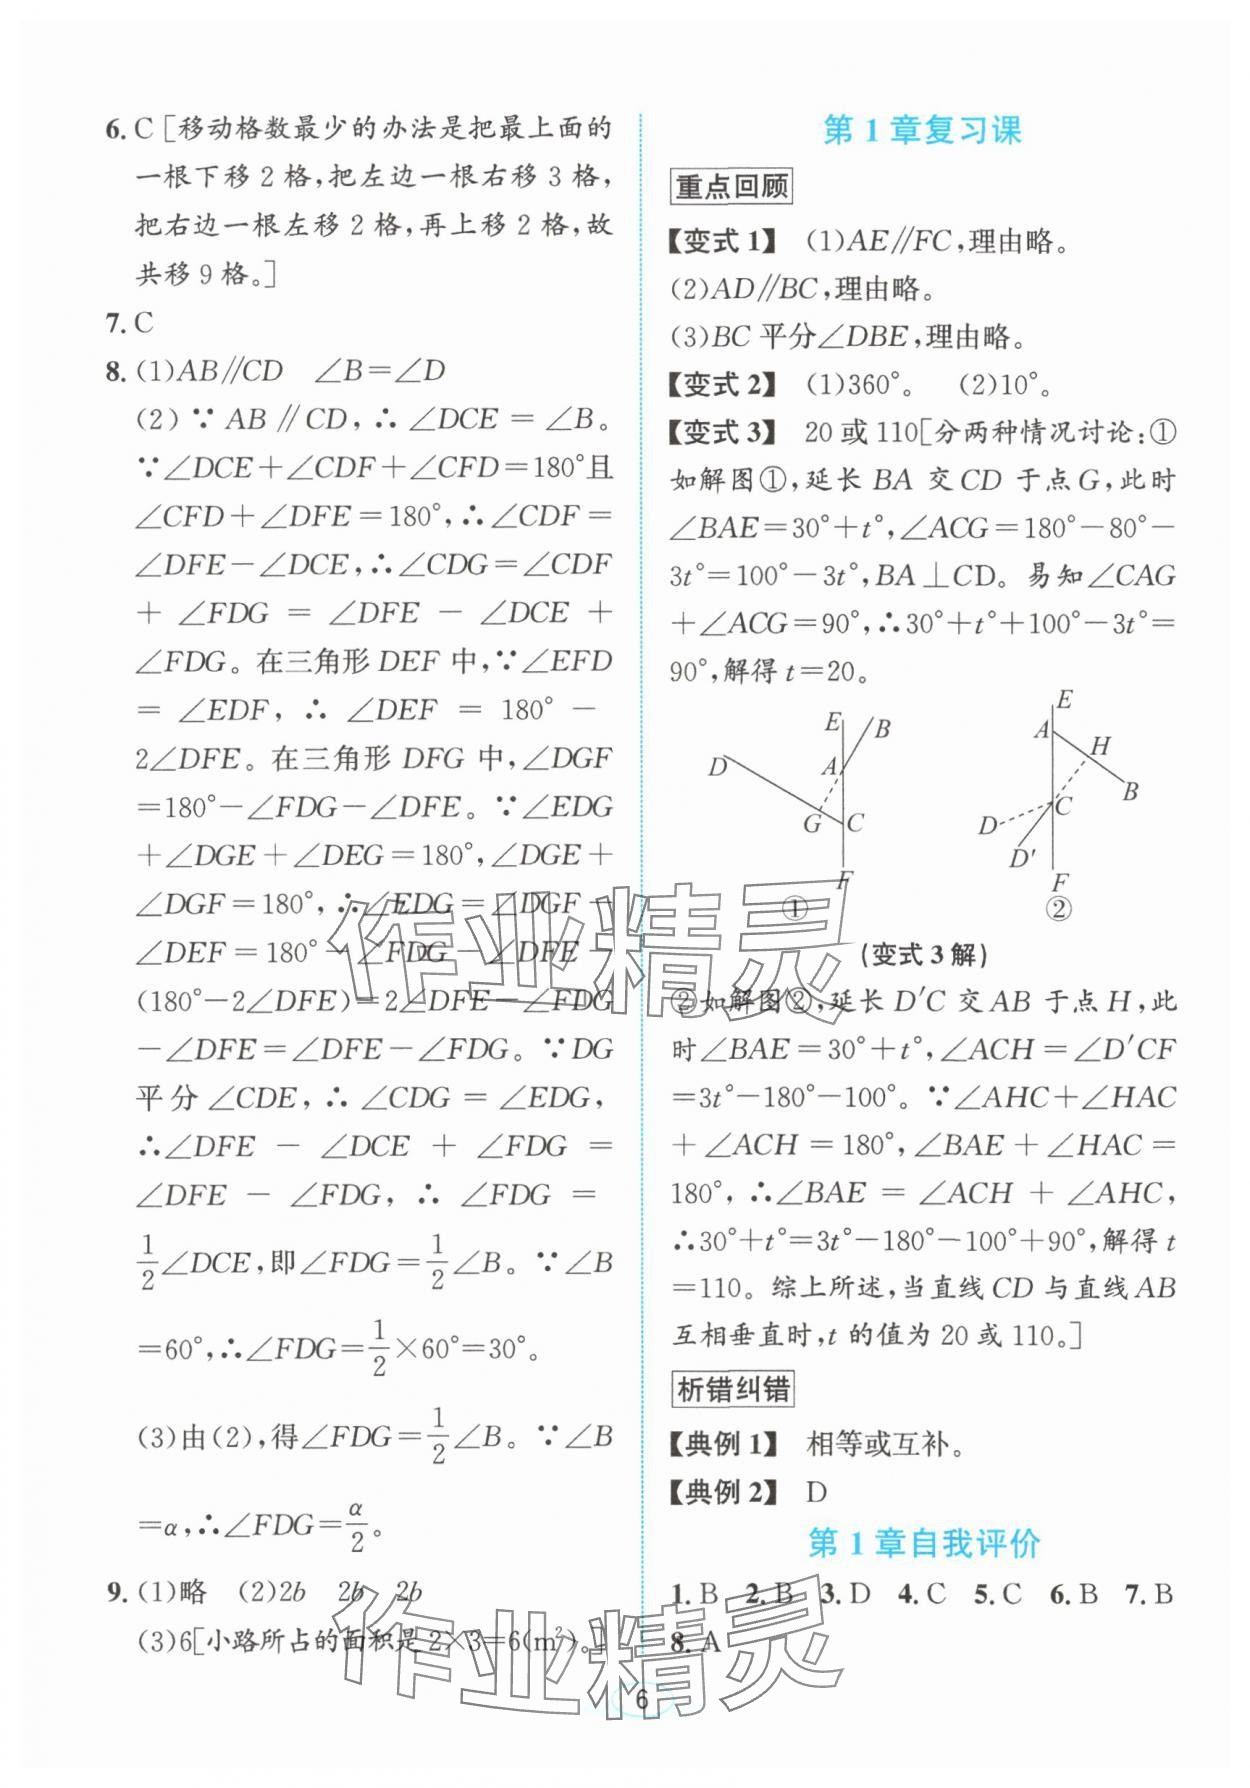 6. C［移动格数最少的办法是把最上面的
一根下移 2 格，把左边一根右移 3 格，
把右边一根左移 2 格，再上移 2 格，故
共移 9 格。］
7. C
8. (1)AB∥CD　∠B=∠D
(2) ∵ AB∥CD，∴ ∠DCE = ∠B。
∵∠DCE+∠CDF+∠CFD=180°且
∠CFD+∠DFE=180°，∴∠CDF=
∠DFE-∠DCE，∴∠CDG=∠CDF
+ ∠FDG = ∠DFE - ∠DCE +
∠FDG。在三角形 DEF 中，∵∠EFD
= ∠EDF，∴ ∠DEF = 180° -
2∠DFE。在三角形 DFG 中，∠DGF
=180°-∠FDG-∠DFE。∵∠EDG
+∠DGE+∠DEG=180°，∠DGE+
∠DGF=180°，∴∠EDG=∠DGF-
∠DEF=180°-∠FDG-∠DFE-
(180°-2∠DFE)=2∠DFE-∠FDG
-∠DFE=∠DFE-∠FDG。∵DG
平分∠CDE，∴∠CDG=∠EDG，
∴∠DFE - ∠DCE + ∠FDG =
∠DFE - ∠FDG，∴ ∠FDG =
1/2∠DCE，即∠FDG=1/2∠B。∵∠B
=60°，∴∠FDG=1/2×60°=30°。
(3)由(2)，得∠FDG=1/2∠B。∵∠B
=α，∴∠FDG=α/2。
9. (1)略　(2)2b　2b　2b
(3)6［小路所占的面积是 2×3=6(m²)。］
第 1 章复习课
重点回顾
【变式 1】　(1)AE∥FC，理由略。
(2)AD∥BC，理由略。
(3)BC 平分∠DBE，理由略。
【变式 2】　(1)360°。　(2)10°。
【变式 3】　20 或 110［分两种情况讨论：①
如解图①，延长 BA 交 CD 于点 G，此时
∠BAE=30°+t°，∠ACG=180°-80°-
3t°=100°-3t°，BA⊥CD。易知∠CAG
+∠ACG=90°，∴30°+t°+100°-3t°=
90°，解得 t=20。
E
B
D
A
G
C
F
①
E
A
H
B
D
C
D′
F
②
(变式 3 解)
②如解图②，延长 D′C 交 AB 于点 H，此
时∠BAE=30°+t°，∠ACH=∠D′CF
=3t°-180°-100°。∵∠AHC+∠HAC
+∠ACH=180°，∠BAE+∠HAC=
180°，∴∠BAE = ∠ACH + ∠AHC，
∴30°+t°=3t°-180°-100°+90°，解得 t
=110。综上所述，当直线 CD 与直线 AB
互相垂直时，t 的值为 20 或 110。］
析错纠错
【典例 1】　相等或互补。
【典例 2】　D
第 1 章自我评价
1. B　2. B　3. D　4. C　5. C　6. B　7. B
8. A
6
作业精灵
作业精灵